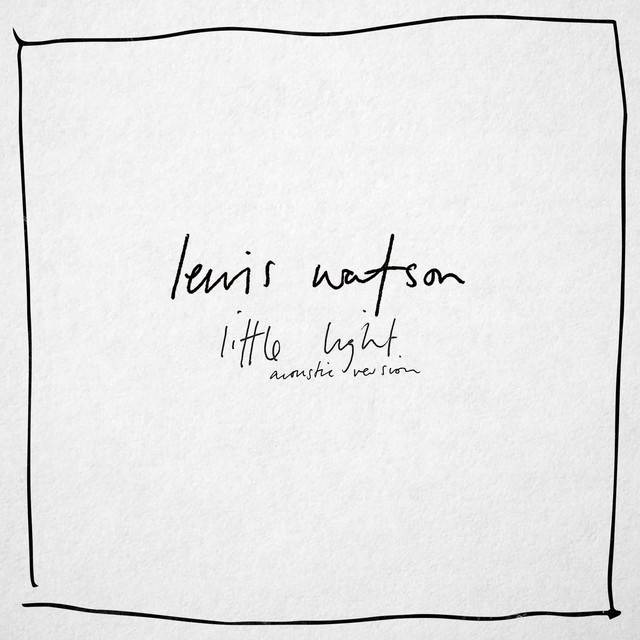 lewis watson
little light
acoustic version